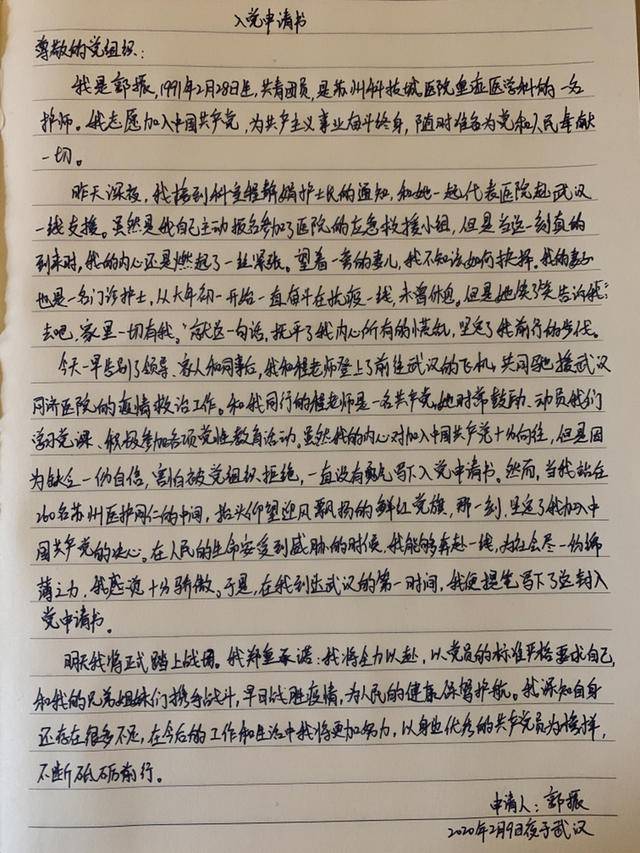 入党申请书
尊敬的党组织：
我是郭振，1991年2月28日生，共青团员，是苏州科技城医院重症医学科的一名
护师。我志愿加入中国共产党，为共产主义事业奋斗终身，随时准备为党和人民奉献
一切。
昨天深夜，我接到科室程静娟护士长的通知，和她一起代表医院赴武汉
一线支援。虽然是我自己主动报名参加了医院的应急救援小组，但是当这一刻真的
到来时，我的内心还是燃起了一丝紧张。望着一旁的妻儿，我不知该如何抉择。我的妻子
也是一名门诊护士，从大年初一开始一直奋斗在抗疫一线，未曾休息。但是她笑了笑告诉我：“
去吧，家里一切有我。”就这一句话，抚平了我内心所有的慌乱，坚定了我前行的步伐。
今天一早告别了领导、家人和同事后，我和程老师登上了前往武汉的飞机，共同驰援武汉
同济医院的疫情救治工作。和我同行的程老师是一名共产党，她时常鼓励、动员我们
学习党课、积极参加各项党性教育活动。虽然我的内心对加入中国共产党十分向往，但是因
为缺令一份自信，害怕被党组织拒绝，一直没有勇气写下入党申请书。然而，当我站在
260名苏州医护同仁的中间，抬头仰望迎风飘扬的鲜红党旗，那一刻，坚定了我加入中
国共产党的决心。在人民的生命安受到威胁的时候，我能够奔赴一线，对社会尽一份绵
薄之力，我感觉十分骄傲。于是，在我到达武汉的第一时间，我便提笔写下了这封入
党申请书。
明天我将正式踏上战场。我郑重承诺：我将全力以赴，以党员的标准严格要求自己，
和我的兄弟姐妹们携手战斗，早日战胜疫情，为人民的健康保驾护航。我深知自身
还存在很多不足，在今后的工作和生活中我将更加努力，以身边优秀的共产党员为榜样，
不断砥砺前行。
申请人：郭振
2020年2月9日夜于武汉